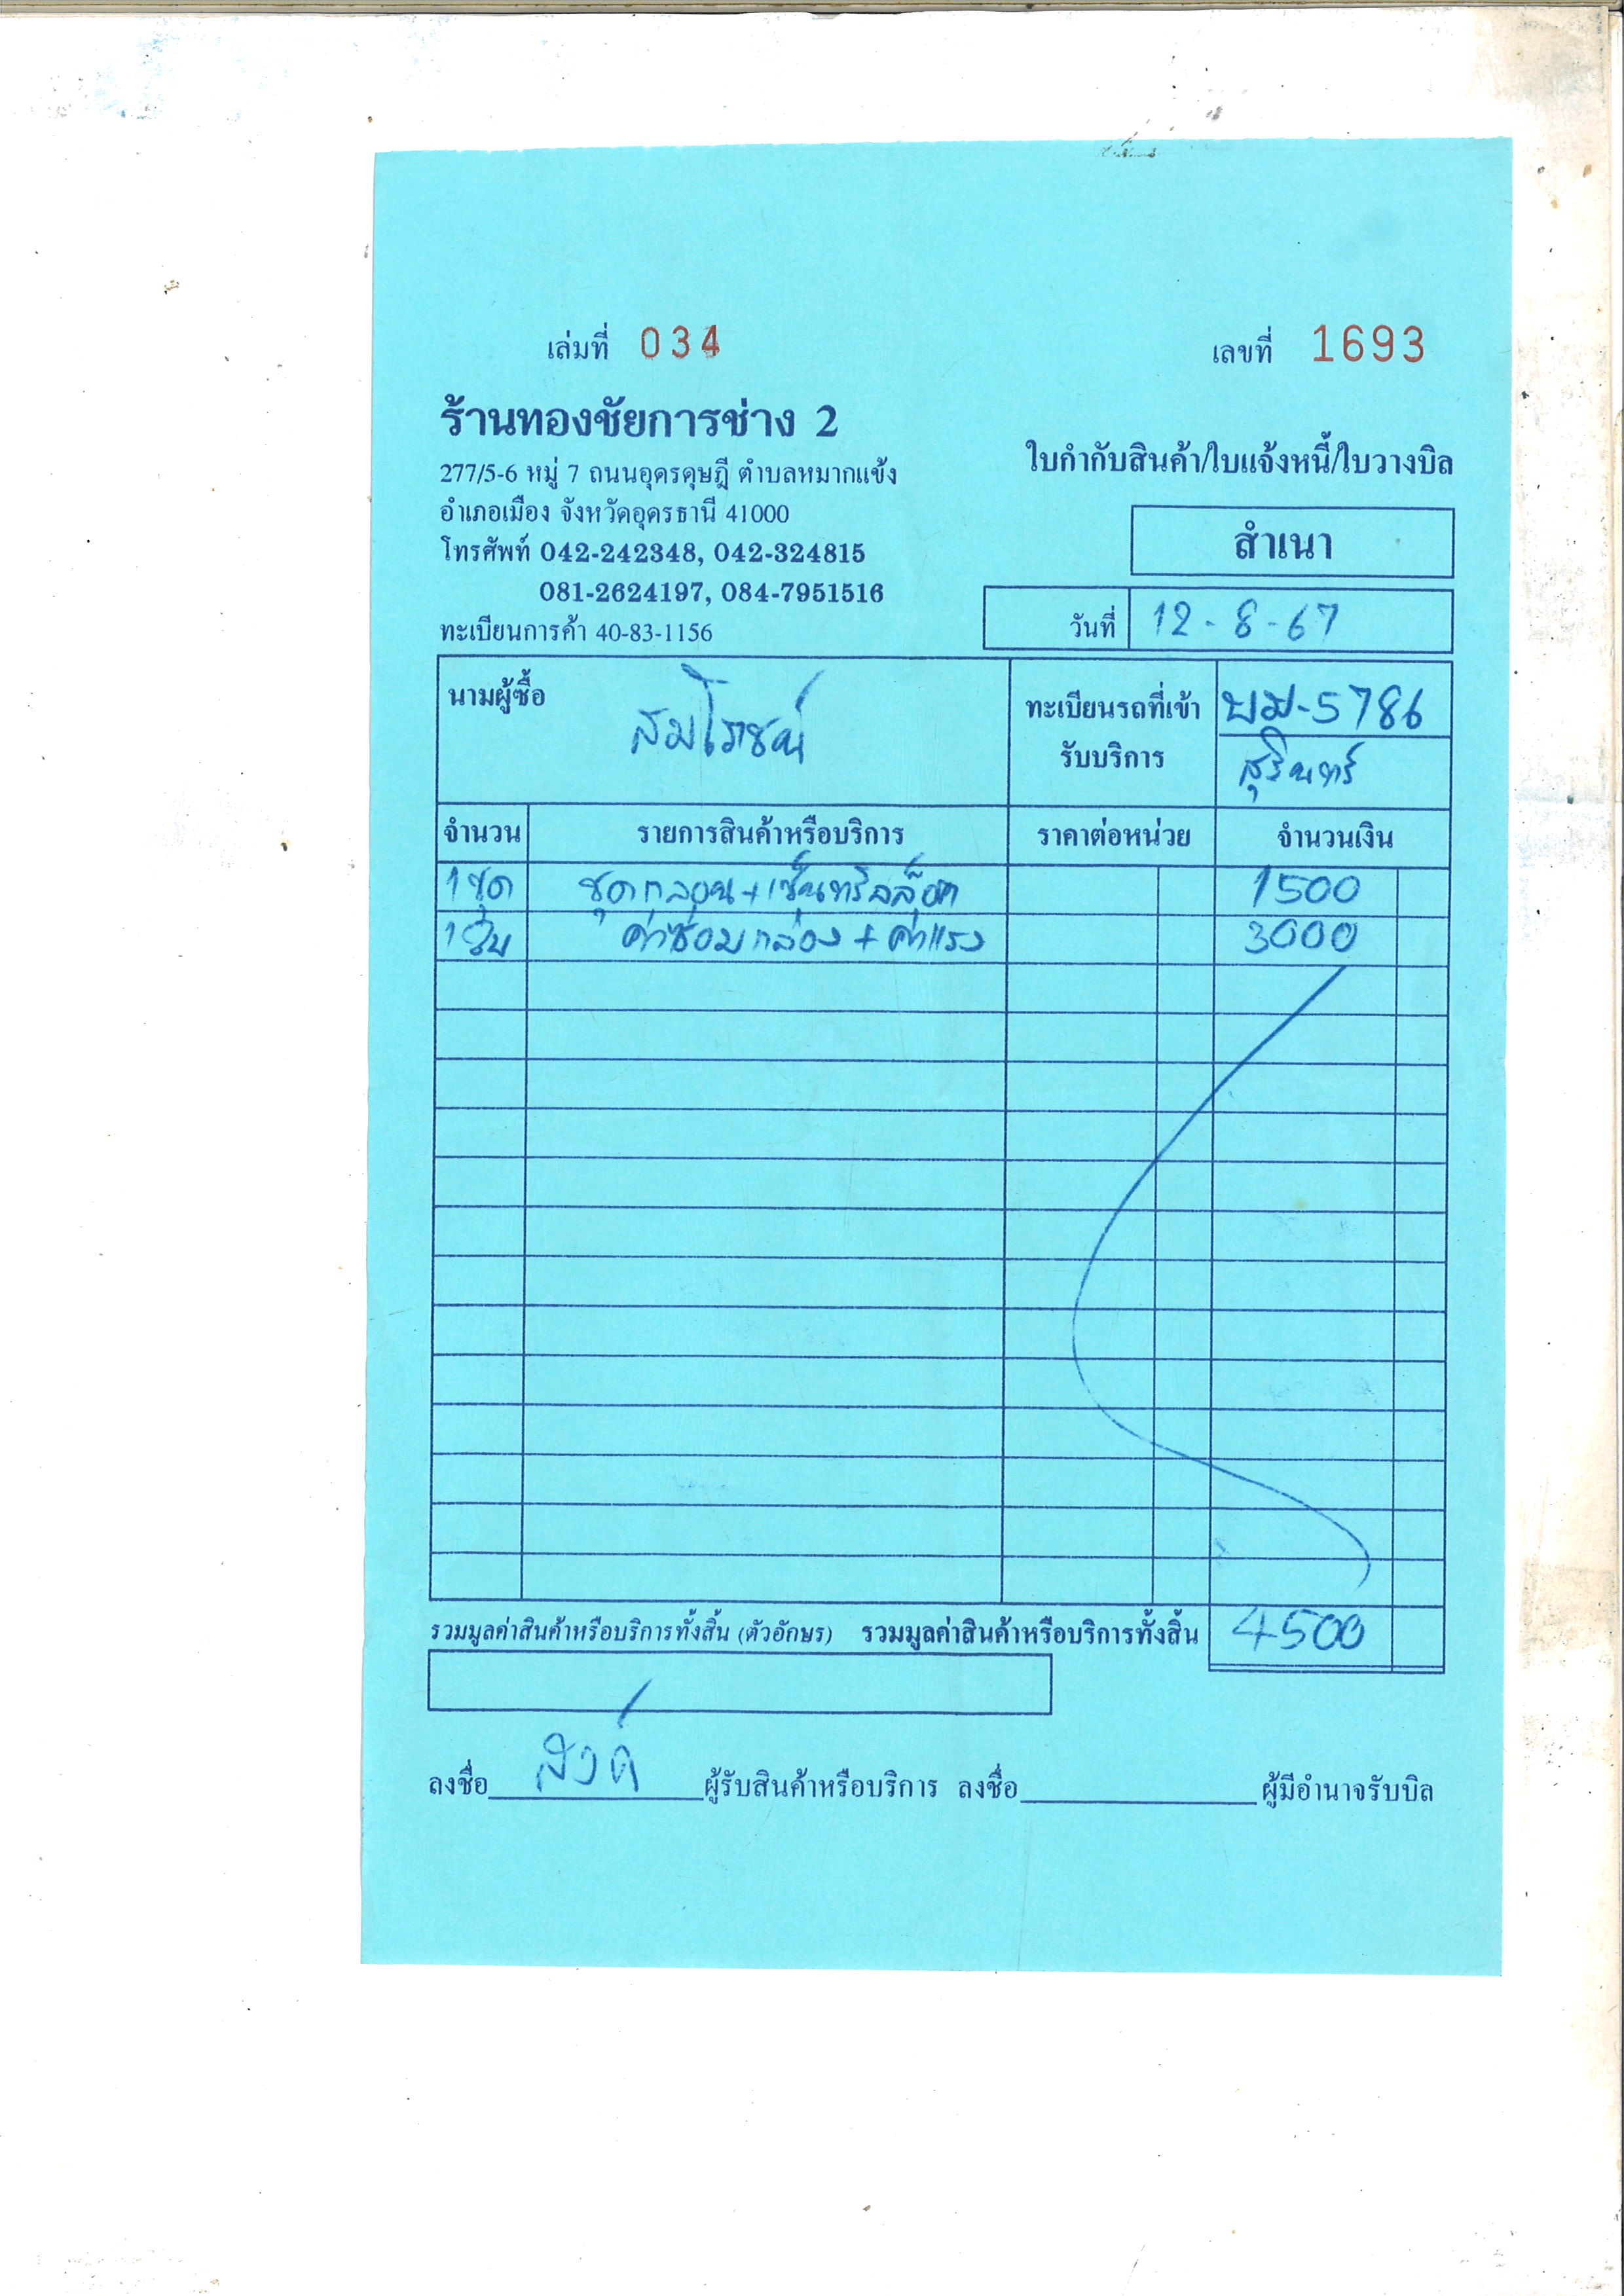 เล่มที่ 034
เลขที่ 1693
ร้านทองชัยการช่าง 2
277/5-6 หมู่ 7 ถนนอุดรดุษฎี ตำบลหมากแข้ง
อำเภอเมือง จังหวัดอุดรธานี 41000
โทรศัพท์ 042-242348, 042-324815
081-2624197, 084-7951516
ทะเบียนการค้า 40-83-1156
ใบกำกับสินค้า/ใบแจ้งหนี้/ใบวางบิล
สำเนา
วันที่ 12-8-67
นามผู้ซื้อ สมโภชน์
ทะเบียนรถที่เข้า พม-5786
รับบริการ สุรินทร์
จำนวน รายการสินค้าหรือบริการ ราคาต่อหน่วย จำนวนเงิน
1ชุด ชุดกลอน+เซ็นทรัลล็อค 1500
1 ค่าซ่อมกล่อง+ค่าแรง 3000
รวมมูลค่าสินค้าหรือบริการทั้งสิ้น (ตัวอักษร) รวมมูลค่าสินค้าหรือบริการทั้งสิ้น 4500
ลงชื่อ ผู้รับสินค้าหรือบริการ ลงชื่อ ผู้มีอำนาจรับบิล